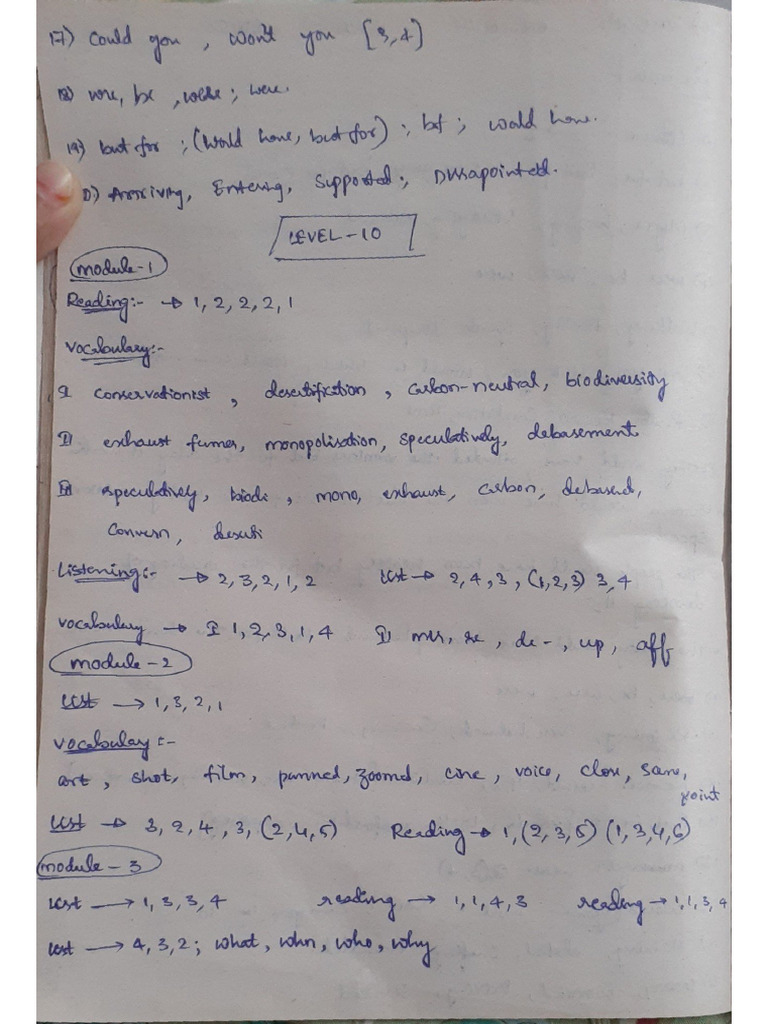 17) Could you , won't you [3,4]
18) were, be , were ; were.
19) but for ; (would have, but for) ; bf ; would have.
0) Arriving, Entering, Supported; Dissapointed.
LEVEL-10
module-1
Reading:- → 1, 2, 2, 2, 1
vocabulary:-
I conservationist , desertification , carbon-neutral, biodiversity
II exhaust fumes, monopolisation, speculatively, debasement
III speculatively, biodi , mono, exhaust, carbon, debased,
Convern, deserti
Listening:- → 2, 3, 2, 1, 2 List → 2, 4, 3, (1, 2, 3) 3, 4
vocabulary → I 1, 2, 3, 1, 4 II mis, re , de-, up, aff
module-2
List → 1, 3, 2, 1
vocabulay :-
art , shot, film, panned, zoomd, cine , voice, close, same,
point
List → 3, 2, 4, 3, (2,4,5) Reading → 1, (2, 3, 5) (1, 3, 4, 6)
module-3
List → 1, 3, 3, 4 reading → 1, 1, 4, 3 reading → 1, 1, 3, 4
List → 4, 3, 2; what, when, who, why